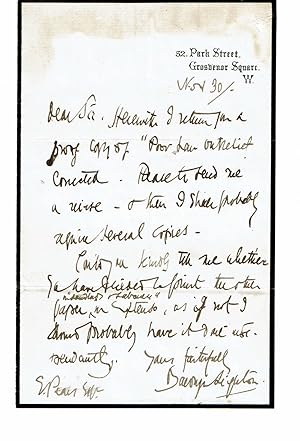 52. Park Street,
Grosvenor Square.
W.
Nov 30/-
Dear Sir. Herewith I return you a
proof copy of "Poor Law outrelief
corrected. Please to send me
a revise - & then I shall probably
require several copies -
kindly tell me whether
you have to print the other
paper, in extenso, as if not I
should probably have it done
Yours faithfully
Baldwyn Leighton.
E. Pears Esqr.